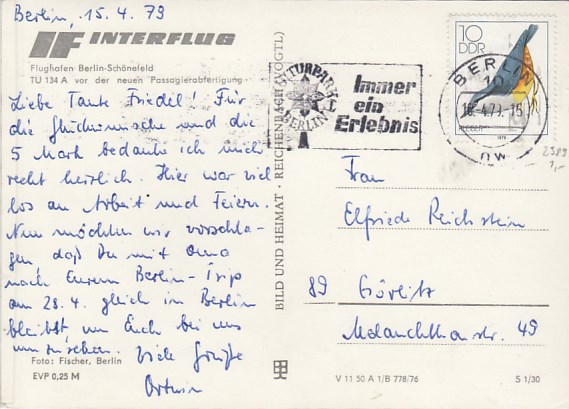 Berlin, 15.4.79
IF INTERFLUG
Flughafen Berlin-Schönefeld
TU 134 A vor der neuen Passagierabfertigung
Liebe Tante Friedel! Für
die Glückwünsche und die
5 Mark bedanke ich mich
recht herzlich. Hier war viel
los an Arbeit und Feiern.
Nun möchten wir vorschla-
gen daß Du mit Oma
nach Eurem Berlin-Trip
am 28.4. gleich in Berlin
bleibst um Euch bei uns
umzusehen. Viele Grüße
Ortwin
Foto: Fischer, Berlin
EVP 0,25 M
BILD UND HEIMAT · REICHENBACH (VOGTL)
KULTURPARK
BERLIN
Immer
ein
Erlebnis
10
DDR
BERLIN
10
16.4.79.-15
nw
Frau
Elfriede Reichstein
89 Görlitz
Melanchthonstr. 49
V 11 50 A 1/B 778/76
S 1/30